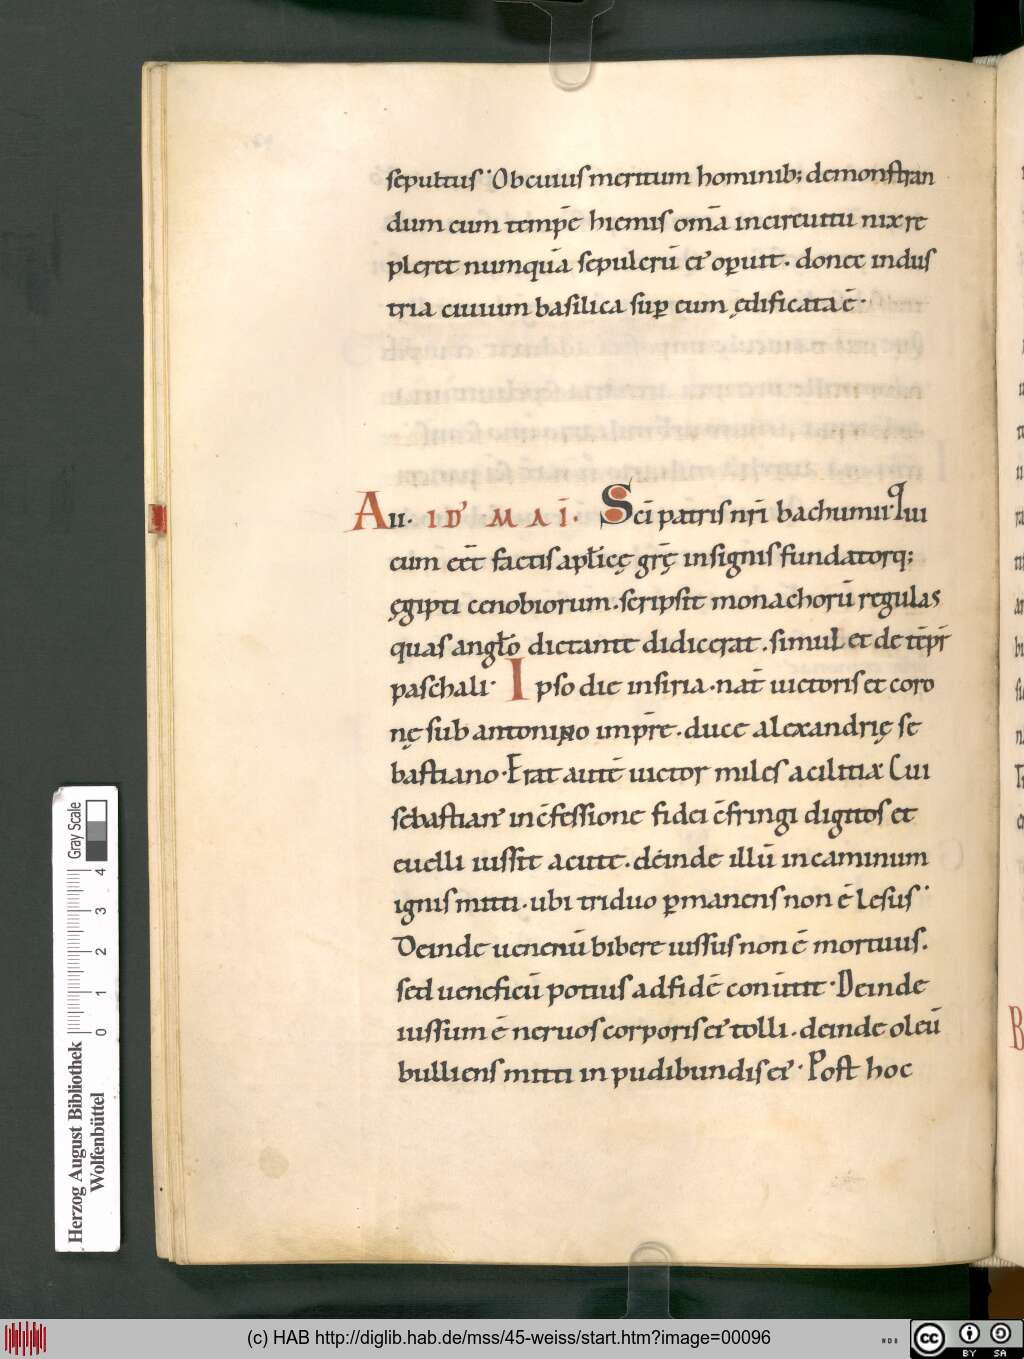 sepultus· Ob cuius meritum hominib; demonstran
dum cum tempē hiemis omā in circuitu nix re
pleret numquā sepulcrū ei' oꝑuit. donec indus
tria ciuium basilica suꝑ eum ędificata ē·
A II· ID' MAI· Scī patris nrī bachumii· Qui
cum eēt factis aplicę grę̄ insignis fundatorq;
ęgipti cenobiorum. scripsit monachorū regulas
quas anglo dictante didicerat. simul et de tēpr
paschali· Ipso die in siria. nat̄ uictoris et coro
nę sub antonino impr̄e. duce alexandrię se
bastiano· Erat autē uictor miles a cilitia. Cui
sebastian' in c̄fessione fidei c̄fringi digitos et
euelli iussit a cute. deinde illū in caminum
ignis mitti. ubi triduo ꝑmanens non ē lesus·
Deinde uenenū bibere iussus non ē mortuus.
sed ueneficū potius ad fidē conūtit· Deinde
iussum ē neruos corporis ei' tolli. deinde oleū
bulliens mitti in pudibundis ei'· Post hoc
Gray Scale
0 1 2 3 4
Herzog August Bibliothek
Wolfenbüttel
(c) HAB http://diglib.hab.de/mss/45-weiss/start.htm?image=00096
cc BY SA